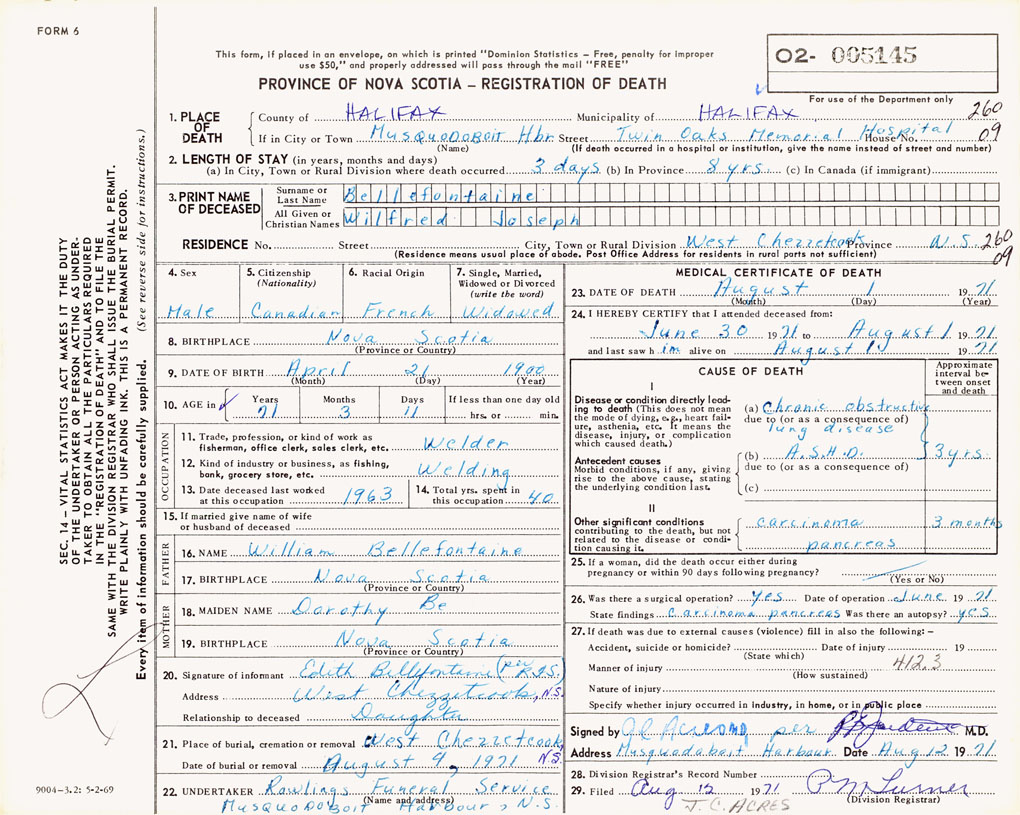 FORM 6
This form, if placed in an envelope, on which is printed "Dominion Statistics – Free, penalty for improper
use $50," and properly addressed will pass through the mail "FREE"
PROVINCE OF NOVA SCOTIA – REGISTRATION OF DEATH
O2- 005145
For use of the Department only
1. PLACE OF DEATH County of HALIFAX Municipality of HALIFAX 260
If in City or Town MUSQUODOBOIT Hbr Street Twin Oaks Memorial Hospital House No. 09
(Name) (If death occurred in a hospital or institution, give the name instead of street and number)
2. LENGTH OF STAY (in years, months and days)
(a) In City, Town or Rural Division where death occurred 3 days (b) In Province 8 yrs. (c) In Canada (if immigrant)
3. PRINT NAME OF DECEASED
Surname or Last Name Bellefontaine
All Given or Christian Names Wilfred Joseph
RESIDENCE No. Street City, Town or Rural Division West Chezzetcook Province N.S. 260
(Residence means usual place of abode. Post Office Address for residents in rural parts not sufficient) 09
4. Sex Male
5. Citizenship (Nationality) Canadian
6. Racial Origin French
7. Single, Married, Widowed or Divorced (write the word) Widowed
8. BIRTHPLACE Nova Scotia
(Province or Country)
9. DATE OF BIRTH April 21 1900
(Month) (Day) (Year)
10. AGE in Years Months Days If less than one day old
71 3 11 hrs. or min.
OCCUPATION
11. Trade, profession, or kind of work as fisherman, office clerk, sales clerk, etc. Welder
12. Kind of industry or business, as fishing, bank, grocery store, etc. Welding
13. Date deceased last worked at this occupation 1963
14. Total yrs. spent in this occupation 40
15. If married give name of wife or husband of deceased
FATHER
16. NAME William Bellefontaine
17. BIRTHPLACE Nova Scotia
(Province or Country)
MOTHER
18. MAIDEN NAME Dorothy Be
19. BIRTHPLACE Nova Scotia
(Province or Country)
20. Signature of informant Edith Bellefontaine (per
Address West Chezzetcook, N.S.
Relationship to deceased Daughter
21. Place of burial, cremation or removal West Chezzetcook N.S.
Date of burial or removal August 9, 1971
22. UNDERTAKER Rawlings Funeral Service
(Name and address)
MUSQUODOBOIT HARBOUR, N.S.
MEDICAL CERTIFICATE OF DEATH
23. DATE OF DEATH August 1 1971
(Month) (Day) (Year)
24. I HEREBY CERTIFY that I attended deceased from:
June 30 1971 to August 1 1971
and last saw h im alive on August 1 1971
CAUSE OF DEATH
Approximate interval between onset and death
I
Disease or condition directly leading to death (This does not mean the mode of dying, e.g., heart failure, asthenia, etc. It means the disease, injury, or complication which caused death.)
(a) Chronic obstructive
due to (or as a consequence of)
lung disease
Antecedent causes
Morbid conditions, if any, giving rise to the above cause, stating the underlying condition last.
(b) A.S.H.D. 3 yrs.
due to (or as a consequence of)
(c)
II
Other significant conditions contributing to the death, but not related to the disease or condition causing it.
carcinoma 3 months
pancreas
25. If a woman, did the death occur either during pregnancy or within 90 days following pregnancy?
(Yes or No)
26. Was there a surgical operation? yes Date of operation June 1971
State findings Carcinoma pancreas Was there an autopsy? yes
27. If death was due to external causes (violence) fill in also the following: –
Accident, suicide or homicide? Date of injury 19
(State which)
Manner of injury 412.3
(How sustained)
Nature of injury
Specify whether injury occurred in industry, in home, or in public place
Signed by per M.D.
Address Musquodoboit Harbour Date Aug 12 1971
28. Division Registrar's Record Number
29. Filed Aug 12 1971 P M Turner
(Division Registrar)
J.C. ACRES
SEC. 14 – VITAL STATISTICS ACT MAKES IT THE DUTY
OF THE UNDERTAKER OR PERSON ACTING AS UNDER-
TAKER TO OBTAIN ALL THE PARTICULARS REQUIRED
IN THE "REGISTRATION OF DEATH" AND TO FILE THE
SAME WITH THE DIVISION REGISTRAR WHO SHALL ISSUE THE BURIAL PERMIT.
WRITE PLAINLY WITH UNFADING INK. THIS IS A PERMANENT RECORD.
Every item of information should be carefully supplied. (See reverse side for instructions.)
9004–3.2: 5-2-69